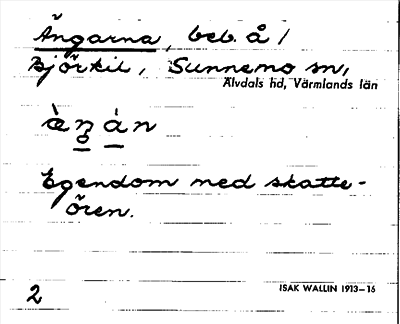 Ängarna, beb. å /
Björkil, Sunnemo sn,
Älvdals hd, Värmlands län
Egendom med skatte-
ören.
2 ISAK WALLIN 1913–16